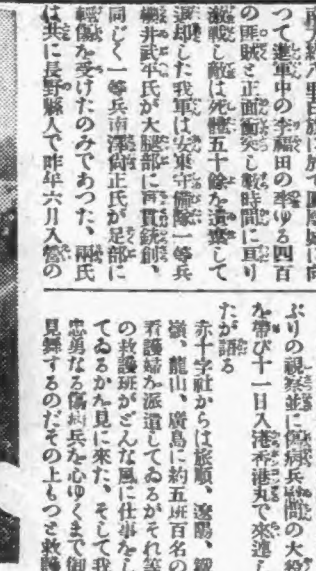 つて進軍中の李福田の率ゆる四百
の匪賊と正面衝突し數時間に亘り
激戰し敵は死體五十餘を遺棄して
退却した我軍は安東守備隊一等兵
櫻井武平氏が大腿部に貫通銃創、
同じく一等兵南澤尙正氏が足部に
輕傷を受けたのみであつた、兩氏
は共に長野縣人で昨年六月入營の
ぶりの視察並に傷病兵慰問の大役
を帶び十一日入港香港丸で來連し
たが語る
赤十字社からは旅順、遼陽、鐵
嶺、龍山、廣島に約五班百名の
看護婦を派遣してゐるがそれ等
の救護班がどんな風に仕事をし
てゐるかを見に來た、そして我
忠勇なる傷病兵を心ゆくまで御
見舞するのだその上もつと救護